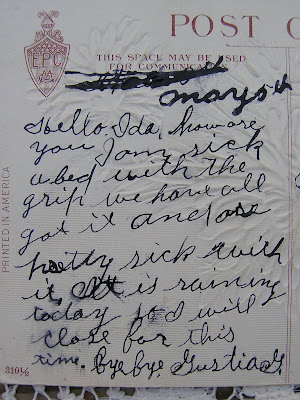 POST C
EPC
THIS SPACE MAY BE USED
FOR COMMUNICA
May 5th
Hello Ida, how are
you I am sick
abed with the
grip we have all
got it and are
pretty sick with
it, it is raining
today so I will
close for this
time. bye bye. Gustia G
PRINTED IN AMERICA
310½